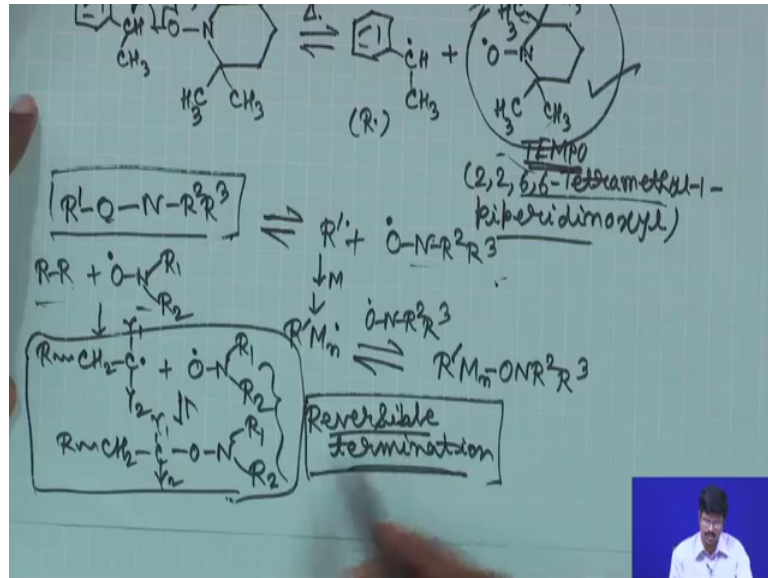 H₃C
ĊH O–N Δ. ⇌ ĊH + •O–N
CH₃ CH₃
H₃C CH₃ (R•) H₃C CH₃
TEMPO
(2,2,6,6-Tetramethyl-1-
piperidinoxyl)
R'–O–N–R²R³ ⇌ R'• + •O–N–R²R³
R-R + •O–N R₁ R₂
↓M
R'Mₙ• •O-N-R²R³ ⇌ R'Mₙ–ONR²R³
Y₁
R~CH₂–C• + •O–N R₁ R₂
Y₂
Y₁
R~CH₂–C–O–N R₁ R₂
Y₂
Reversible
termination